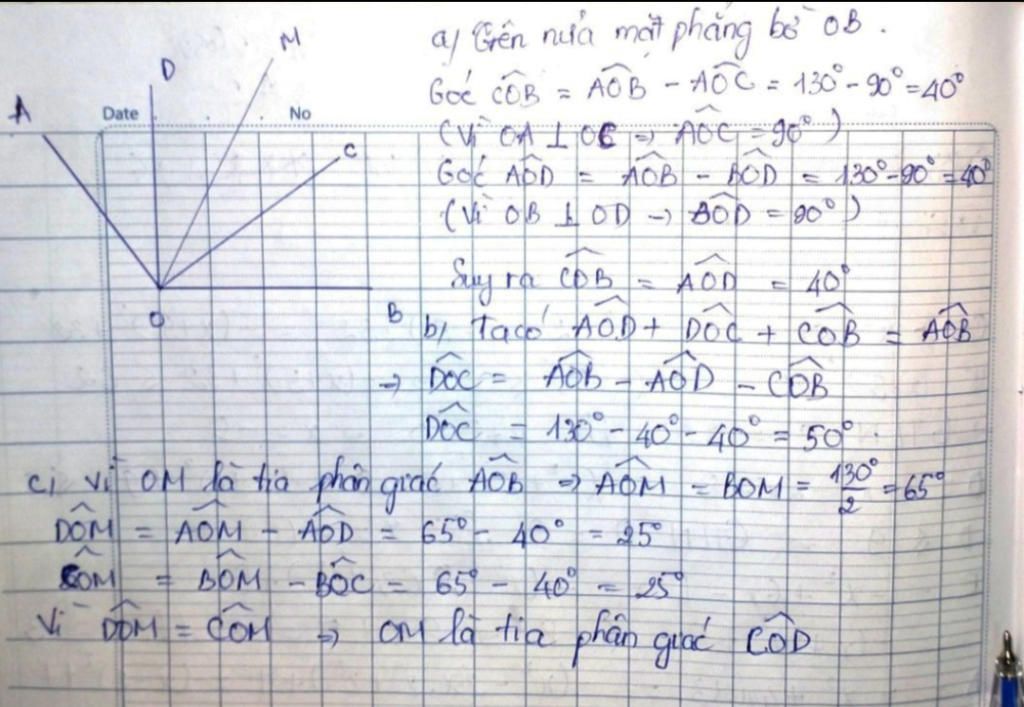 a) Trên nửa mặt phẳng bờ OB.
Góc \widehat{COB} = \widehat{AOB} - \widehat{AOC} = 130° - 90° = 40°
(Vì OA ⊥ OC → \widehat{AOC} = 90°)
Góc \widehat{AOD} = \widehat{AOB} - \widehat{BOD} = 130° - 90° = 40°
(Vì OB ⊥ OD → \widehat{BOD} = 90°)
Suy ra \widehat{COB} = \widehat{AOD} = 40°
b) Ta có \widehat{AOD} + \widehat{DOC} + \widehat{COB} = \widehat{AOB}
→ \widehat{DOC} = \widehat{AOB} - \widehat{AOD} - \widehat{COB}
\widehat{DOC} = 130° - 40° - 40° = 50°.
c) Vì OM là tia phân giác \widehat{AOB} ⇒ \widehat{AOM} = BOM = \frac{130°}{2} = 65°
\widehat{DOM} = \widehat{AOM} - \widehat{AOD} = 65° - 40° = 25°
\widehat{COM} = \widehat{BOM} - \widehat{BOC} = 65° - 40° = 25°
Vì \widehat{DOM} = \widehat{COM} ⇒ OM là tia phân giác \widehat{COD}
M
D
A
Date No
C
O
B